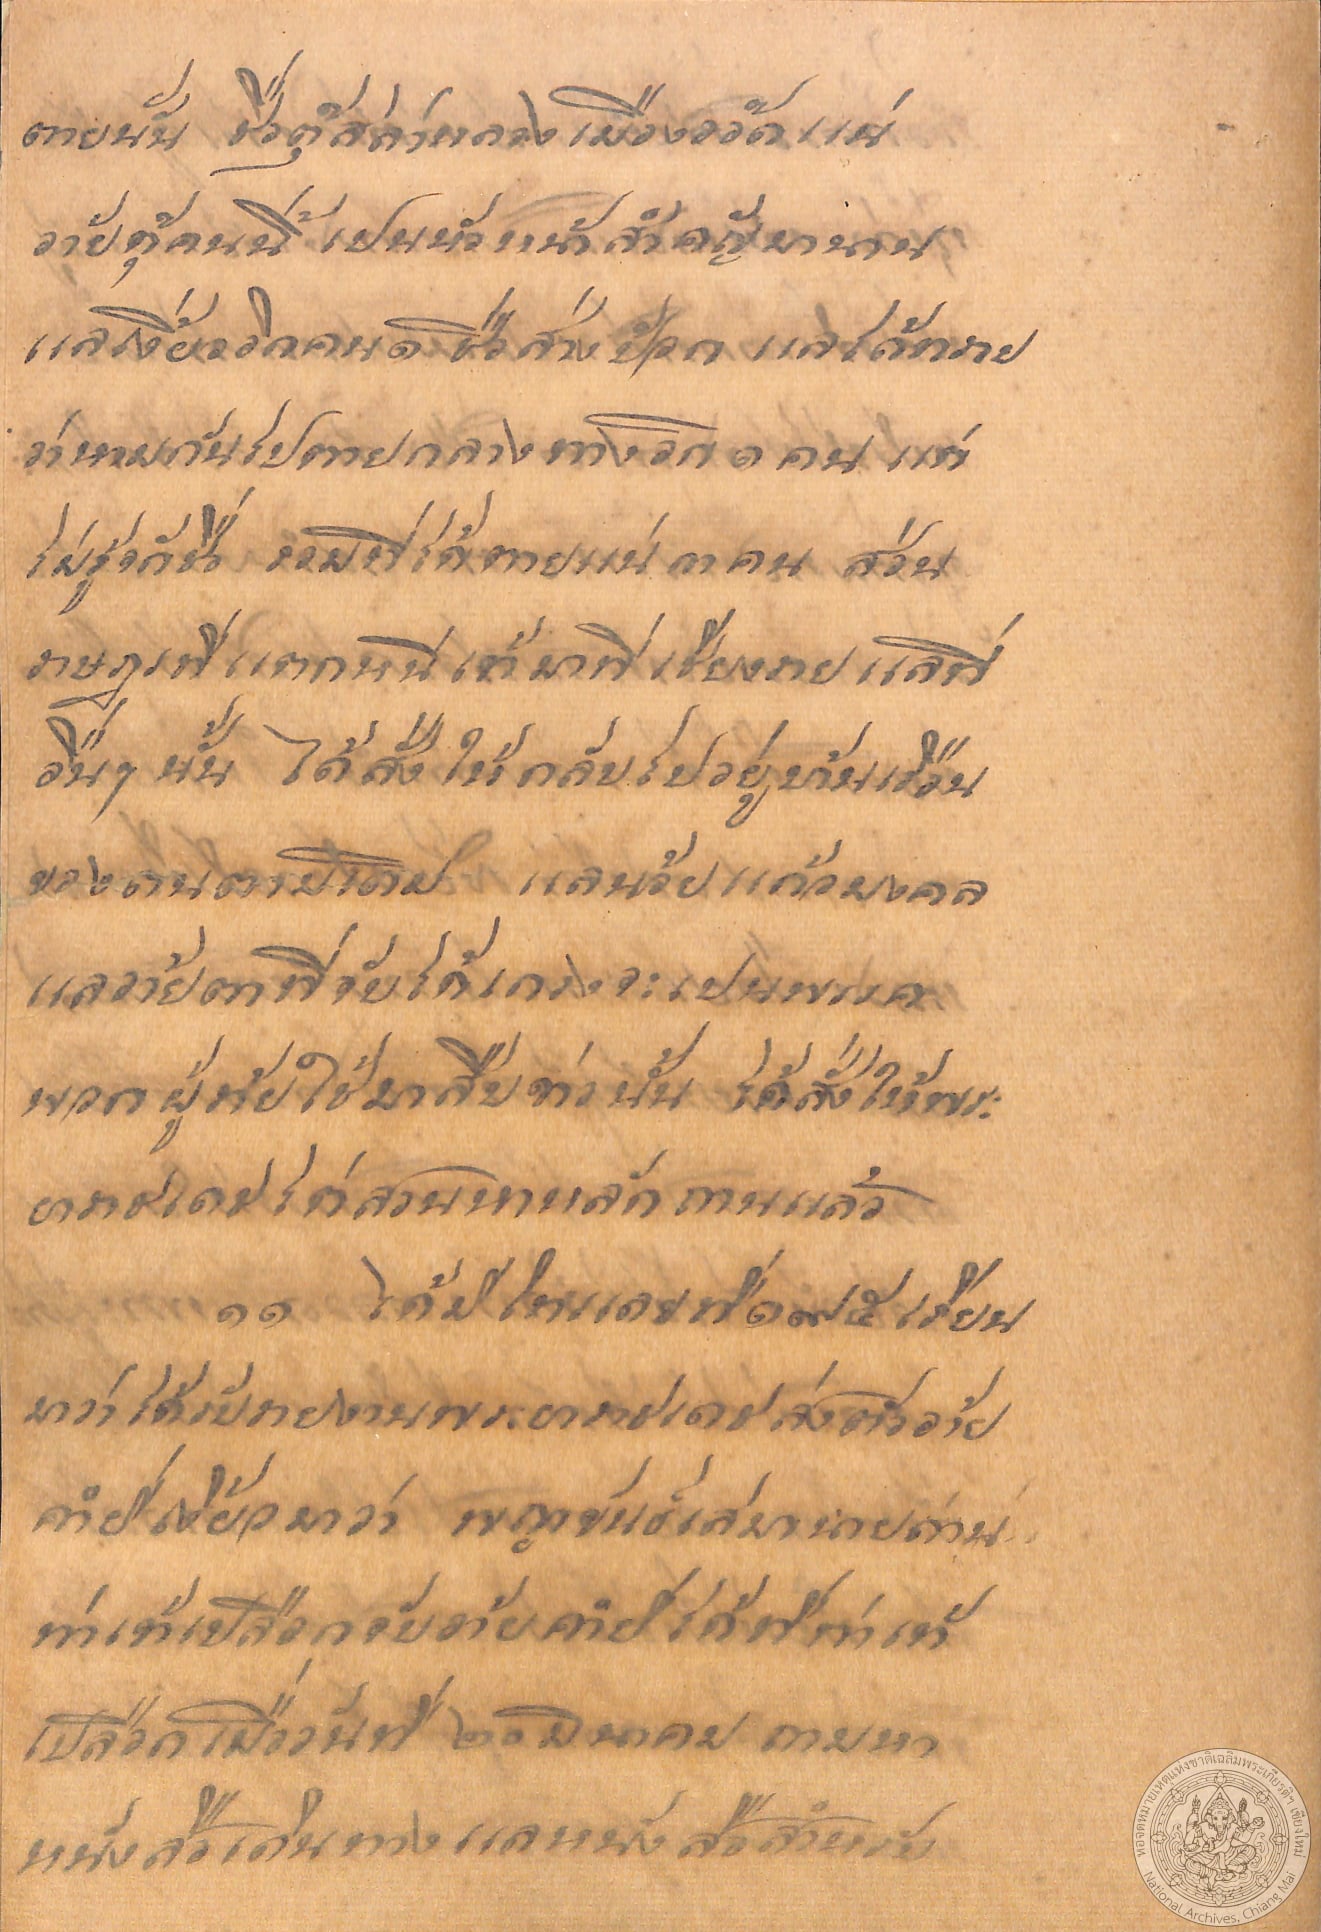 ตายนั้น ชื่อตุ๊ส่ล่าหลวงเมืองออด แน่
อ้ายตุ๊คนนี้ เปนหัวหน้าสำคัญมานาน
แลเงี้ยวอีกคน ๑ ชื่อส่าง ป๊อก แลได้ทราย
ว่าหามกันไปตายกลางทางอีก ๑ คน แต่
ไม่รู้จักชื่อ รวมที่ได้ตายแน่ ๓ คน ส่วน
ราษฎรที่แตกหนีเข้ามาที่เชียงราย แลที่
อื่นๆ นั้น ได้สั่งให้กลับไปอยู่บ้านเรือน
ของตนตามเดิม แลน้อยแก้วมงคล
แลอ้ายตาที่จับได้เกรงจะเปนพรรค
พวกผู้ร้ายใช้มาสืบข่าวนั้น ได้สั่งให้พระ
ยาราชเดชไต่สวนหาหลักถานแล้ว
๑๑ ได้มีใบนเลขที่ ๑๙๕ เรียน
มาว่าได้รับรายงานพระยาราชเดชส่งตัวอ้าย
คำปี่เงี้ยวมาว่า พญาขันธ์เสมานายด่าน
ท่าเข้าเปลือกจับอ้ายคำปี่ได้ที่ท่าเข้า
เปลือกเมื่อวันที่ ๒๐ มินาคม ถามหา
หนังสือเดินทางแลหนังสือสำหรับ